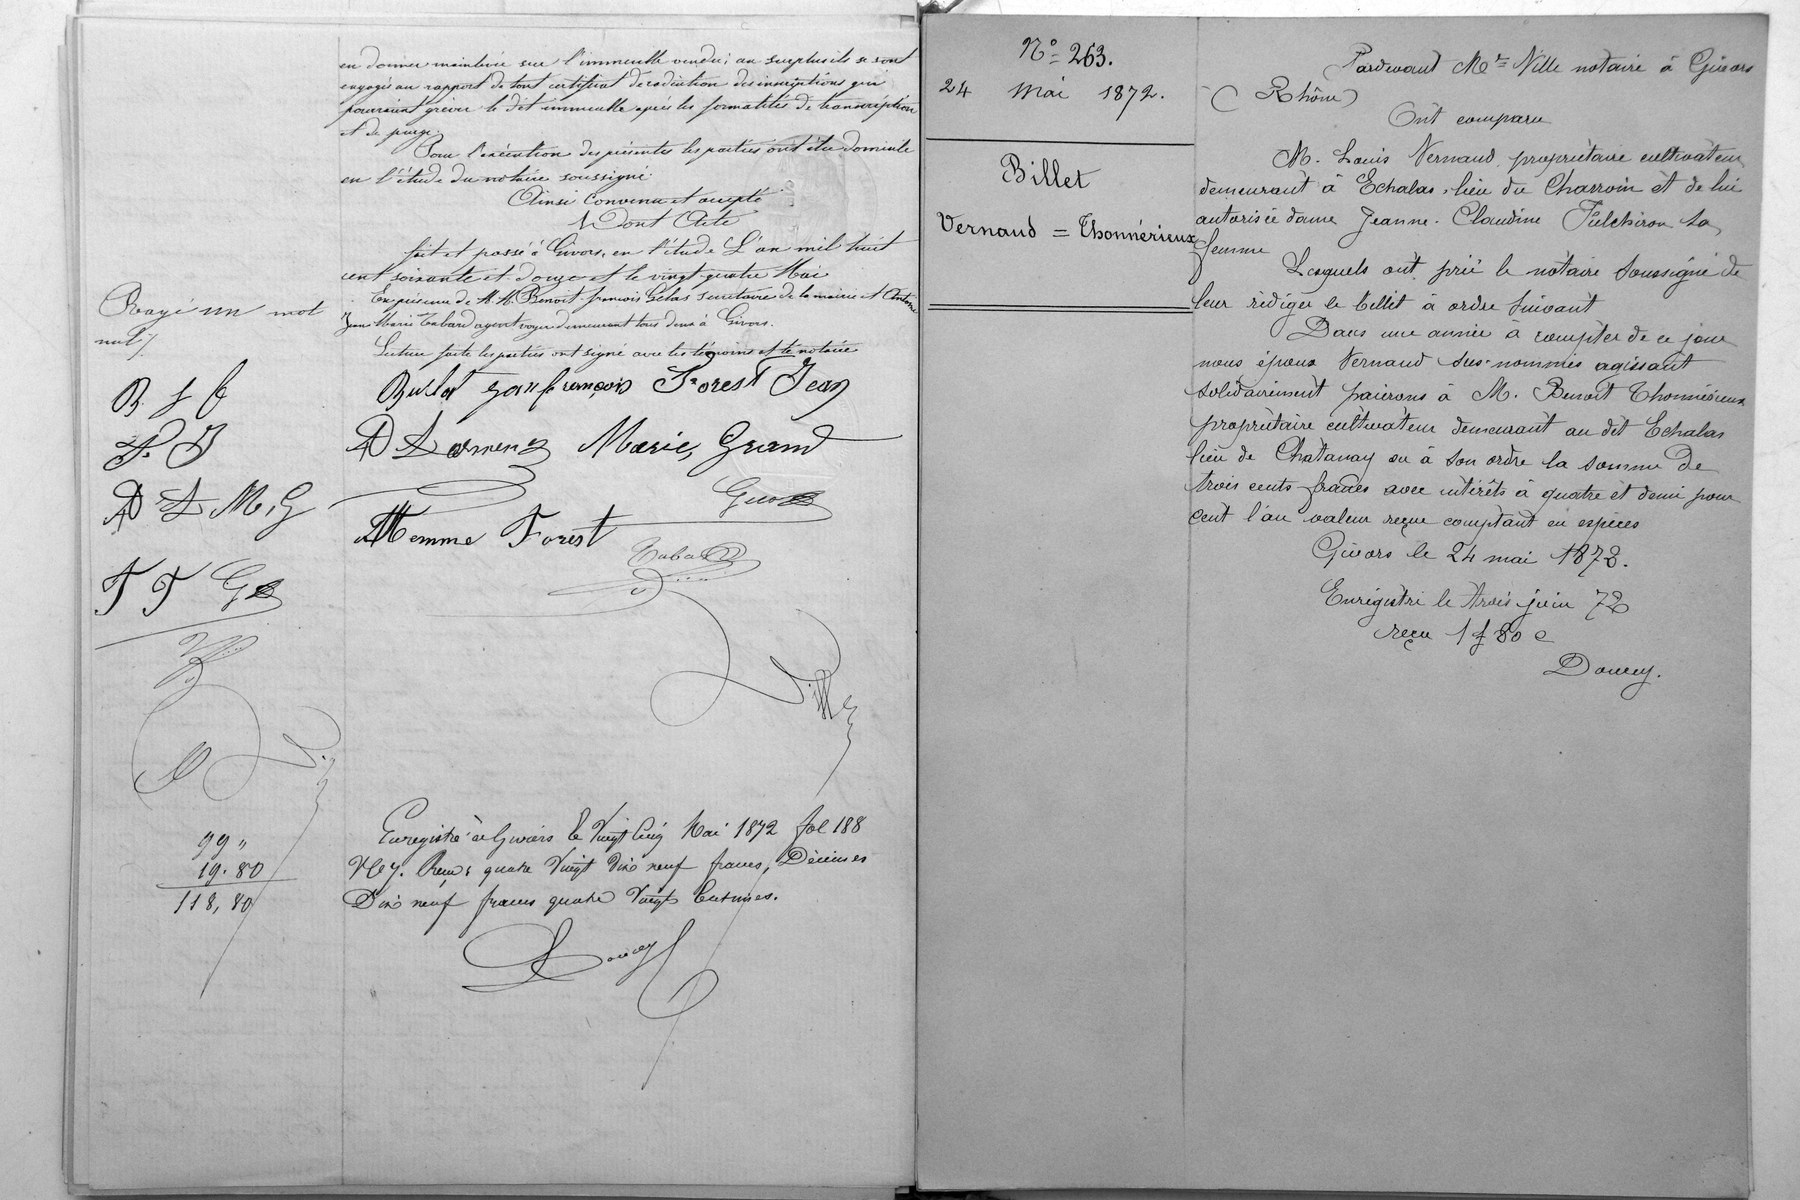 en donner mainlevée sur l'immeuble vendu; au surplus ils se sont
engagés au rapport de tout certificat de radiation des inscriptions qui
pourraient grever le dit immeuble après les formalités de transcription
et de purge.
Pour l'exécution des présentes les parties ont élu domicile
en l'étude du notaire soussigné.
Ainsi convenu et accepté.
Dont Acte
fait et passé à Givors, en l'étude L'an mil huit
cent soixante et douze et le vingt-quatre Mai
En présence de M.M. Benoit-françois Gelas secrétaire de la mairie et Antoine
Jean Marie Tabard agent voyer demeurant tous deux à Givors.
Lecture faite les parties ont signé avec les témoins et le notaire
Rayé un mot
nul /.
Jean françois Forest Jean
Marie, Grand
femme Forest
Tabard
Ville
B J f
F. J
D L M, G
F F G
99 "
19. 80
118, 80
Enregistré à Givors le Vingt Cinq Mai 1872 fol 188
Reçu: quatre Vingt Dix neuf francs, Décimes
Dix neuf francs quatre Vingt Centimes.
Doucey
N° 263.
24 Mai 1872.
Billet
Vernaud = Thonnérieux
Pardevant Me Ville notaire à Givors
(Rhône)
Ont comparu
M. Louis Vernaud propriétaire cultivateur
demeurant à Echalas, lieu du Charroin et de lui
autorisée dame Jeanne-Claudine Fulchiron sa
femme
Lesquels ont prié le notaire soussigné de
leur rédiger le billet à ordre suivant
Dans une année à compter de ce jour
nous époux Vernaud sus-nommés agissant
solidairement paierons à M. Benoit Thonnérieux
propriétaire cultivateur demeurant au dit Echalas
lieu de Chatanay ou à son ordre la somme de
trois cents francs avec intérêts à quatre et demi pour
cent l'an valeur reçue comptant en espèces
Givors le 24 mai 1872.
Enregistré le trois juin 72
reçu 1 f 80 c
Doucey.